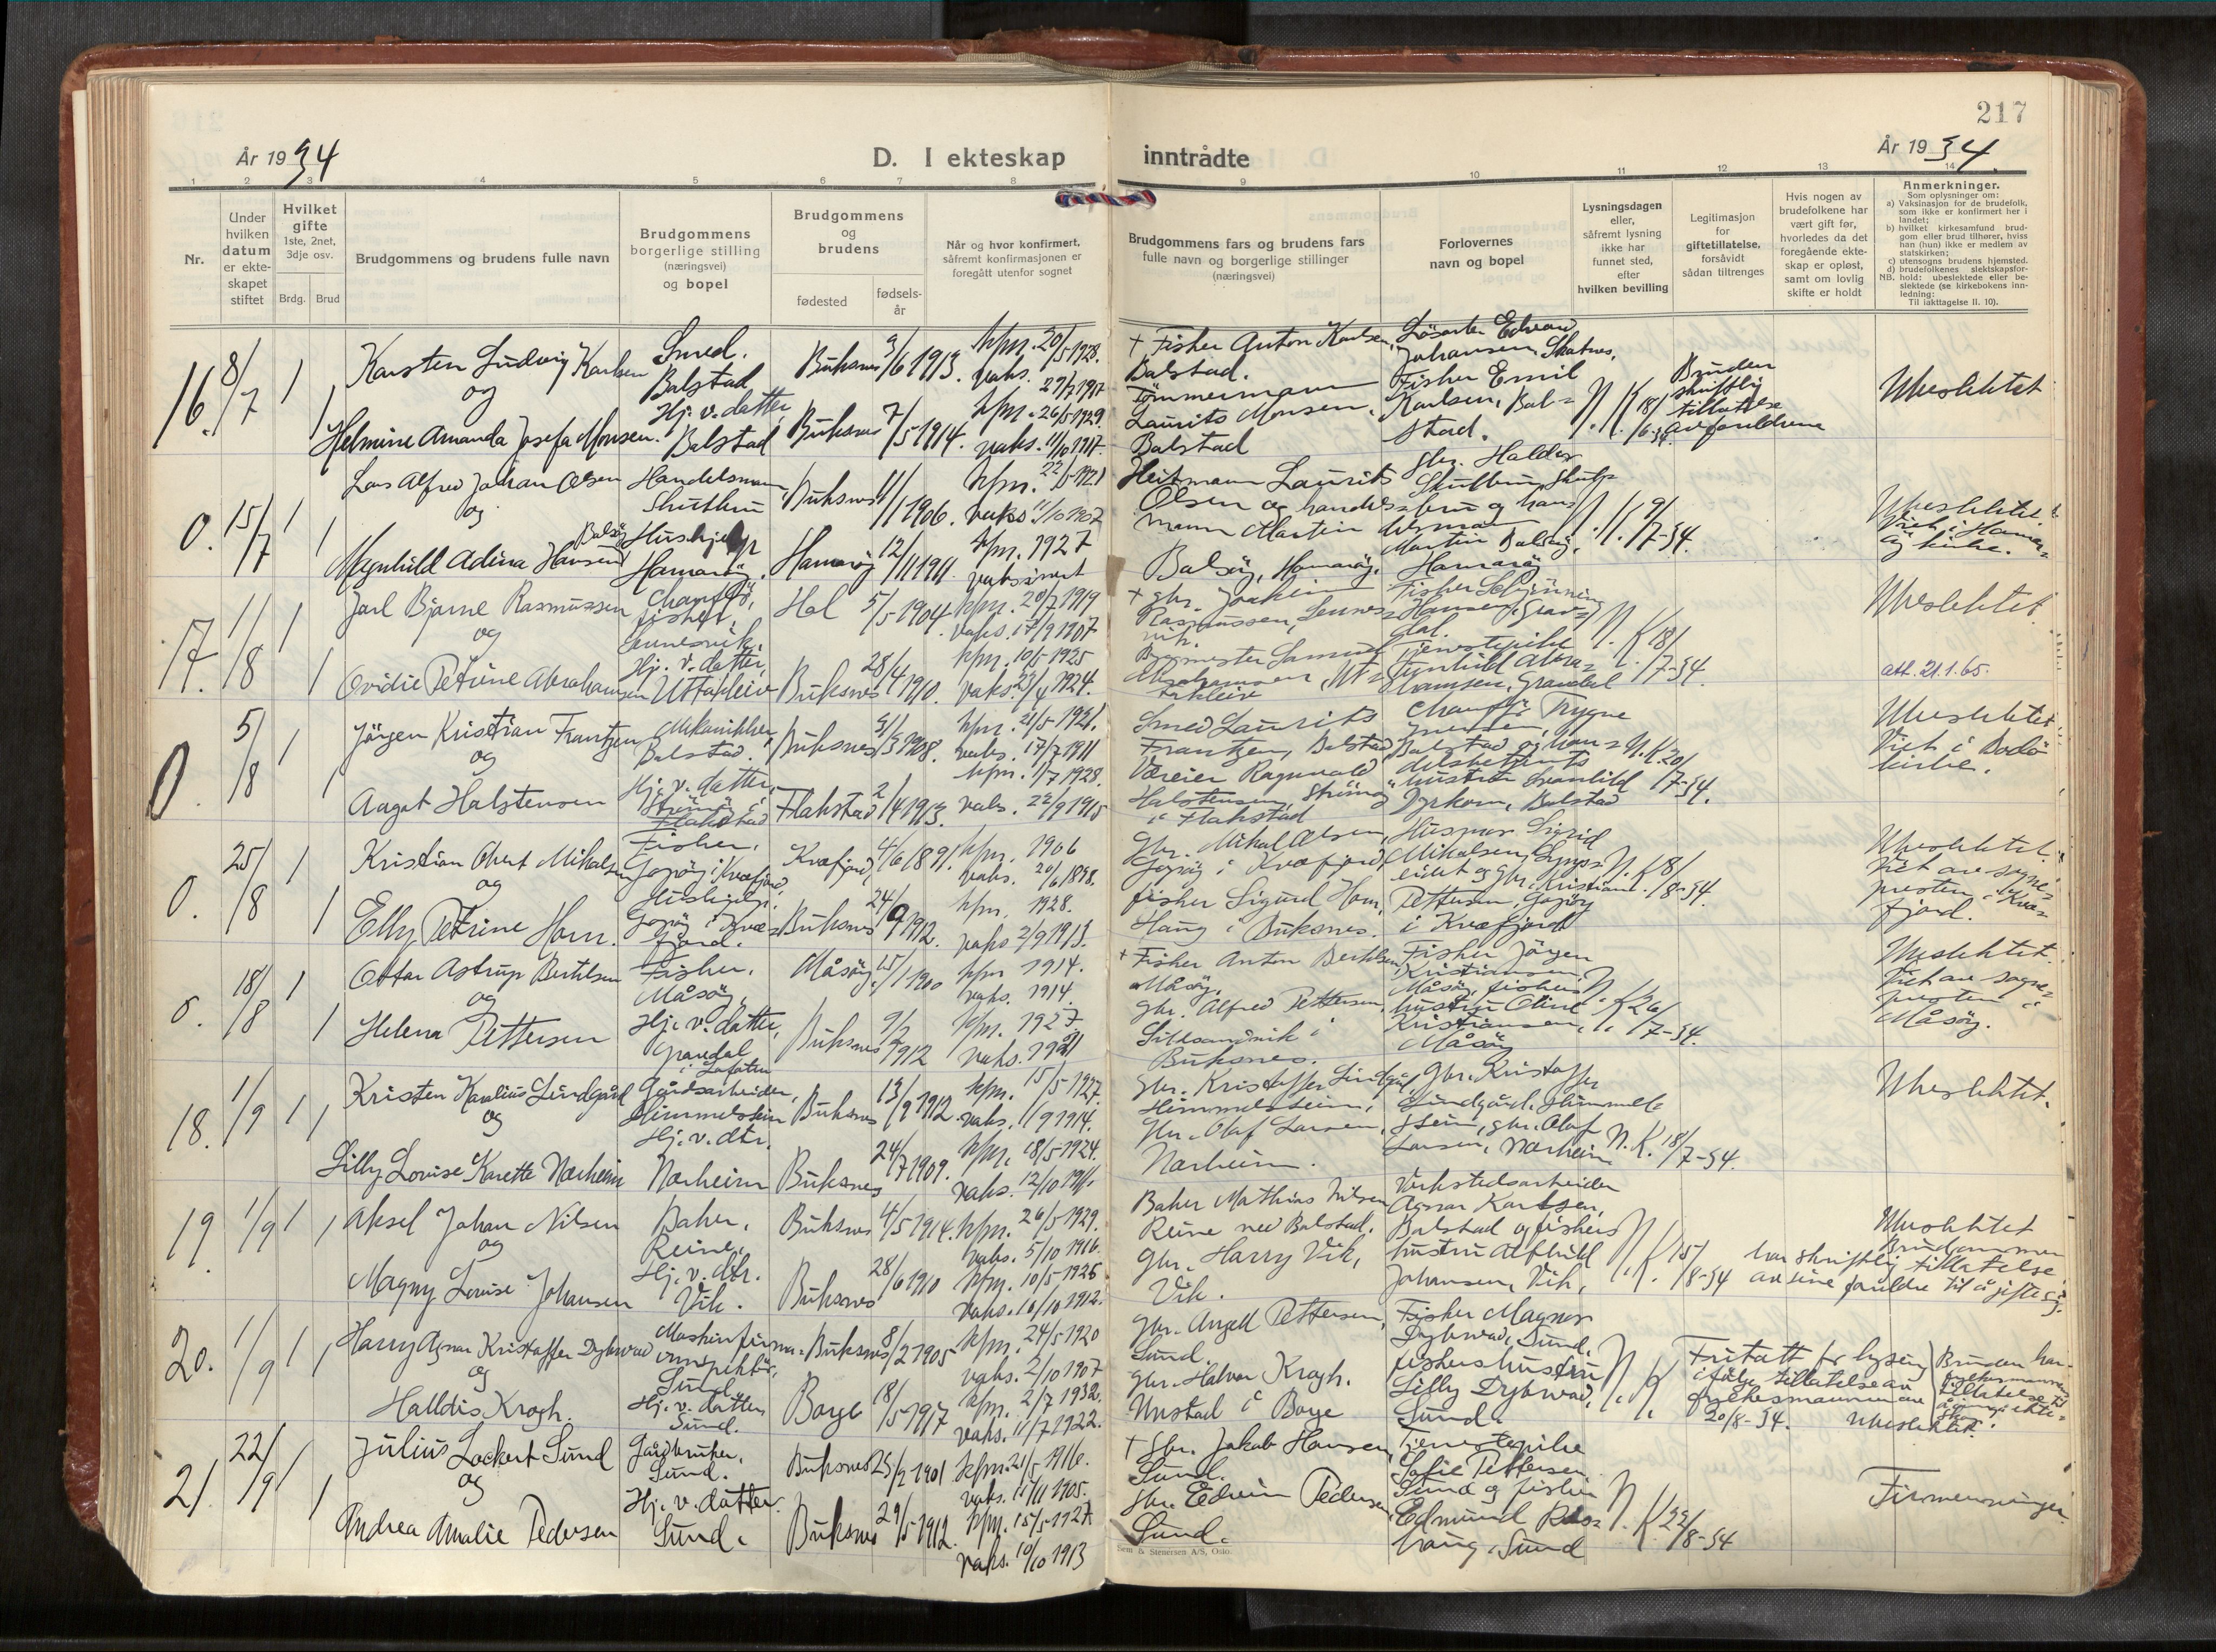 217
År 1934
D. I ekteskap inntrådte
År 1934.
1 2 3 4 5 6 7 8 9 10 11 12 13 14
Nr.
Under hvilken datum er ekteskapet stiftet
Hvilket gifte
1ste, 2net, 3dje osv.
Brdg. Brud
Brudgommens og brudens fulle navn
Brudgommens borgerlige stilling (næringsvei) og bopel
Brudgommens og brudens
fødested
fødselsår
Når og hvor konfirmert, såfremt konfirmasjonen er foregått utenfor sognet
Brudgommens fars og brudens fars fulle navn og borgerlige stillinger (næringsvei)
Forlovernes navn og bopel
Lysningsdagen eller, såfremt lysning ikke har funnet sted, efter hvilken bevilling
Legitimasjon for giftetillatelse, forsåvidt sådan tiltrenges
Hvis nogen av brudefolkene har vært gift før, hvorledes da det foregående ekteskap er opløst, samt om lovlig skifte er holdt
Anmerkninger.
Som oplysninger om:
a) Vaksinasjon for de brudefolk, som ikke er konfirmert her i landet;
b) hvilket kirkesamfund brudgom eller brud tilhører, hviss han (hun) ikke er medlem av statskirken;
c) utensogns brudens hjemsted.
d) brudefolkenes slektskapsforhold: ubeslektede eller beslektede (se kirkebokens innledning:
NB. Til iakttagelse II. 10).
16. 8/7 1 1
Karsten Ludvig Karlsen
og
Helmine Amanda Josefa Monsen.
Smed.
Balstad
Hj. v. datter,
Balstad
Buksnes 9/6 1913. kfm. 20/5 1928.
vaks. 27/7 1917
Buksnes 7/5 1914. kfm. 26/5 1929.
vaks. 11/10 1917.
+ Fisker Anton Karlsen,
Balstad.
Tömmermann
Laurits Monsen,
Balstad
Edvard
Johansen, Skotnes,
Fisker Emil
Karlsen, Balstad.
N.K. 18/6-34.
Bruden
skriftlig
tillatelse
av foreldrene
Ubeslektet
0. 15/7 1 1
Lars Alfred Johan Olsen
og
Magnhild Adina Hansen
Balsöy
Handelsmann
Skuttun
Hushjelp
Hamaröy.
Buksnes 11/1 1906. kfm. 22/5 1921
vaks 11/10 1907
Hamaröy 12/11 1911. kfm. 1927
vaksinert
Heitmann Laurits
Olsen og handelsmann Martin
Balsöy, Hamaröy,
gbr. Halder
Martin Balsöy,
Hamaröy
N.K. 9/7-34.
Ubeslektet.
Viet i Hamaröy kirke.
17. 11/8 1 1
Jarl Bjarne Rasmussen
og
Ovidie Petrine Abrahamsen
Chauffør,
fisker,
Sennesvik.
Hj. v. datter,
Uttakleiv
Hol 5/5 1904. kfm. 20/7 1919
vaks. 17/9 1907
Buksnes 28/4 1910. kfm. 10/5 1925
vaks. 22/4 1924.
+ gbr. Joakim
Rasmussen, Sennesvik.
Samuel
Abrahamsen, Uttakleiv
Fisker
Hansen, Gravdal.
Tjenestepike
Gunhild Abrahamsen, Gravdal
N.K. 18/7-34.
Ubeslektet.
att. 21.1.65.
0. 5/8 1 1
Jörgen Kristian Frantzen
og
Aagot Halstensen
Mekanikker,
Balstad.
Hj. v. datter,
Strömöy i
Flakstad
Buksnes 31/3 1908. kfm. 21/5 1921.
vaks. 17/7 1911
Flakstad 2/4 1913. kfm. 1/7 1928.
vaks. 22/9 1915
Smed Laurits
Frantzen, Balstad
Væreier Ragnvald
Halstensen, Strömöy
i Flakstad
Chauffør Trygve
Jensen,
Balstad og handelsbetjents
hustru Svanhild
Dyrkorn, Balstad
N.K. 20/7-34.
Ubeslektet
Viet i Bodö
kirke.
0. 25/8 1 1
Kristian Obert Mikalsen
og
Elly Petrine Horn.
Fisker,
Gapöy i Kvæfjord,
Hushjelp.
Gapöy i Kvæfjord.
Kvæfjord 4/6 1891. kfm. 1906
vaks. 20/6 1898.
Buksnes 24/9 1912. kfm. 1928.
vaks 2/9 1913.
gbr. Mikal Olsen,
Gapöy i Kvæfjord
fisker Sigurd Horn,
Haug i Buksnes.
Husmor Sigrid
Mikalsen,
og gbr. Kristian
Pettersen, Gapöy
i Kvæfjord
N.K. 8/8-34.
Ubeslektet.
Viet av sognepresten i Kvæfjord.
0. 18/8 1 1
Ottar Astrup Bertilsen
og
Helena Pettersen
Fisker,
Måsöy,
Hj. v. datter,
Gravdal
i Lofoten
Måsöy 15/1 1900 kfm 1914.
vaks. 1914.
Buksnes 9/2 1912 kfm. 1927
vaks. 1921
+ Fisker Anton Bertilsen
Måsöy.
gbr. Alfred Pettersen,
Sillsandvik i
Buksnes.
Fisker Jörgen
Kristiansen
Måsöy, fiskers
hustru Oline
Kristiansen,
Måsöy
N.K. 26/7-34.
Ubeslektet.
Viet av sognepresten i
Måsöy.
18. 1/9 1 1
Kristen Karolius Lindgård
og
Lilly Lovise Karette Norheim
Gårdsarbeider,
Himmelstein
Hj. v. dtr.
Norheim
Buksnes 13/9 1912 kfm. 15/5 1927.
vaks. 11 9 1914.
Buksnes 24/7 1909. kfm. 18/5 1924.
vaks. 12/10 1911.
gbr. Kristoffer Lindgård,
Himmelstein,
gbr. Olaf Larsen,
Norheim.
gbr. Kristoffer
Lindgård, Himmelstein, gbr. Olaf
Larsen, Norheim
N.K. 18/7-34.
Ubeslektet.
19. 1/9 1 1
Aksel Johan Nilsen
og
Magny Lovise Johansen
Baker,
Reine.
Hj. v. dtr.
Vik.
Buksnes 4/5 1914. kfm. 26/5 1929.
vaks. 5/10 1916.
Buksnes 28/6 1910 kfm. 10/5 1925
vaks. 10/10 1912.
Baker Mathias Nilsen
Reine ved Balstad.
gbr. Harry Vik,
Vik.
Verkstedsarbeider
Agnar Karlsen,
Balstad og fiskers
hustru Alfhild
Johansen, Vik,
N.K. 15/8-34
Ubeslektet
Brudgommen
har skriftlig tillatelse
av sine foreldre til å gifte sig.
20. 1/9 1 1
Harry Agnar Kristoffer Dybwad
og
Halldis Krogh.
inspektör,
Sund.
Hj. v. datter,
Sund.
Buksnes 8/2 1905 kfm. 24/5 1920
vaks. 2/10 1907
Borge 18/5 1917 kfm. 2/7 1932.
vaks. 11/7 1922.
gbr. Angell Pettersen,
Sund.
gbr. Halvor Krogh.
Unstad i Borge
Fisker Magnor
Dybwad, Sund.
fiskers hustru
Lilly Dybwad,
Sund.
N.K.
Fritatt for lysning
ifölge tillatelse av
fylkesmannen av
20/8-34. Ubeslektet.
Bruden har
fylkesmannens
tillatelse til
å inngå ekteskap.
21. 22/9 1 1
Julius Lockert Sund
og
Andrea Amalie Pedersen
Gårdbruker,
Sund.
Hj. v. datter.
Sund.
Buksnes 25/2 1901 kfm. 21/5 1916.
vaks. 11/11 1905.
Buksnes 29/5 1912. kfm. 15/5 1927.
vaks. 10/10 1913
+ gbr. Jakob Hansen,
Sund.
gbr. Edvin Pedersen
Sund.
Tjenestepike
Sofie Pettersen
Sund og fisker
Edmund
Sund
N.K. 22/8-34
Firmenninger.
Sem & Stenersen A/S, Oslo.